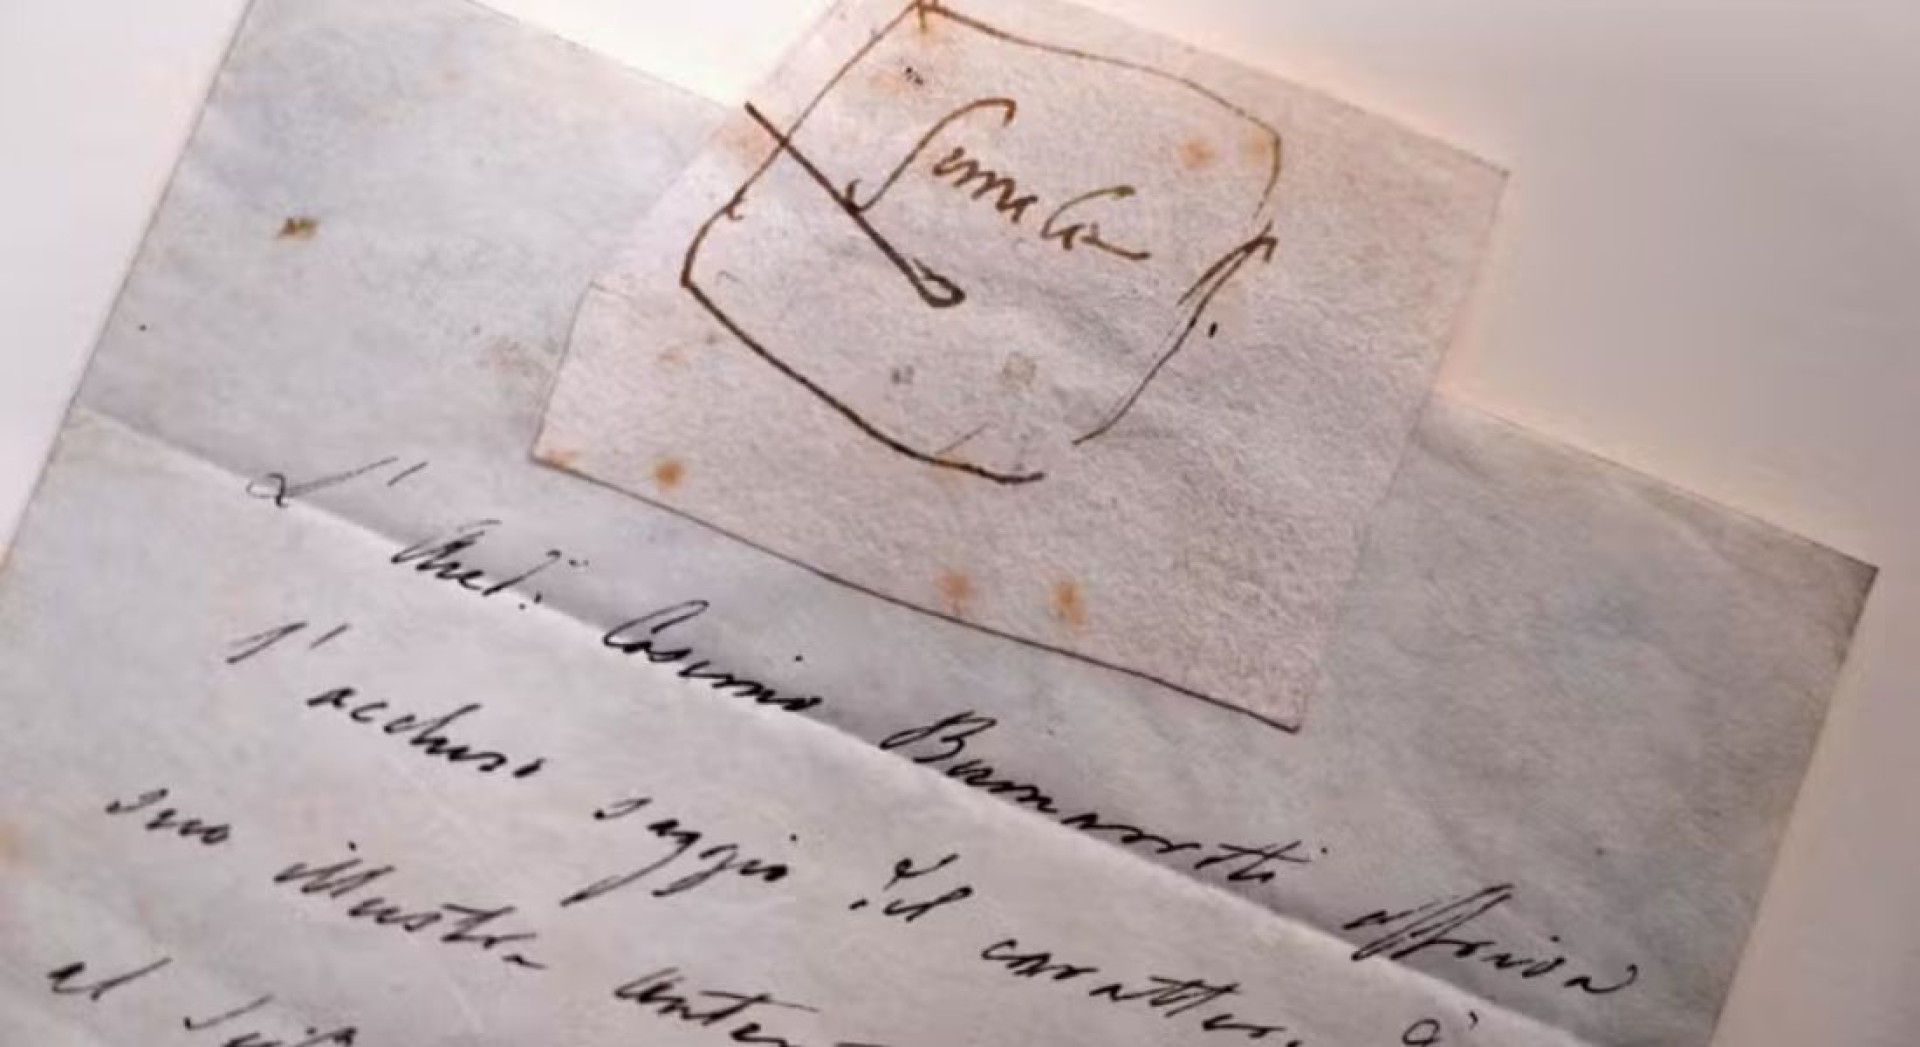 Simula
L' Avv.: Cosimo Buonarroti offriva
l' accluso saggio del carattere
suo illustre anten
al